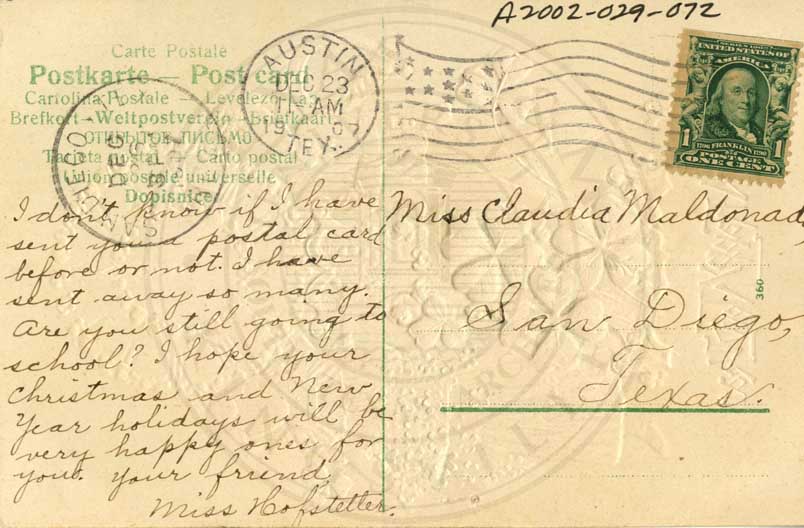 A2002-029-072
Carte Postale
Postkarte — Post card
Cartolina Postale — Levelező-Lap
Brefkort - Weltpostverein - Briefkaart
ОТКРЫТОЕ ПИСЬМО
Tarjeta postal — Carto postal
Union postale universelle
Dopisnice
AUSTIN
DEC 23
11 AM
1907
TEX.
SAN DIEGO
DEC
SERIES 1902
UNITED STATES OF
AMERICA
1
1
1706 FRANKLIN 1790
POSTAGE
ONE CENT
I don't know if I have
sent you a postal card
before or not. I have
sent away so many.
Are you still going to
school? I hope your
Christmas and New
Year holidays will be
very happy ones for
you. Your friend,
Miss Hofstetter.
Miss Claudia Maldonad
San Diego,
Texas.
360